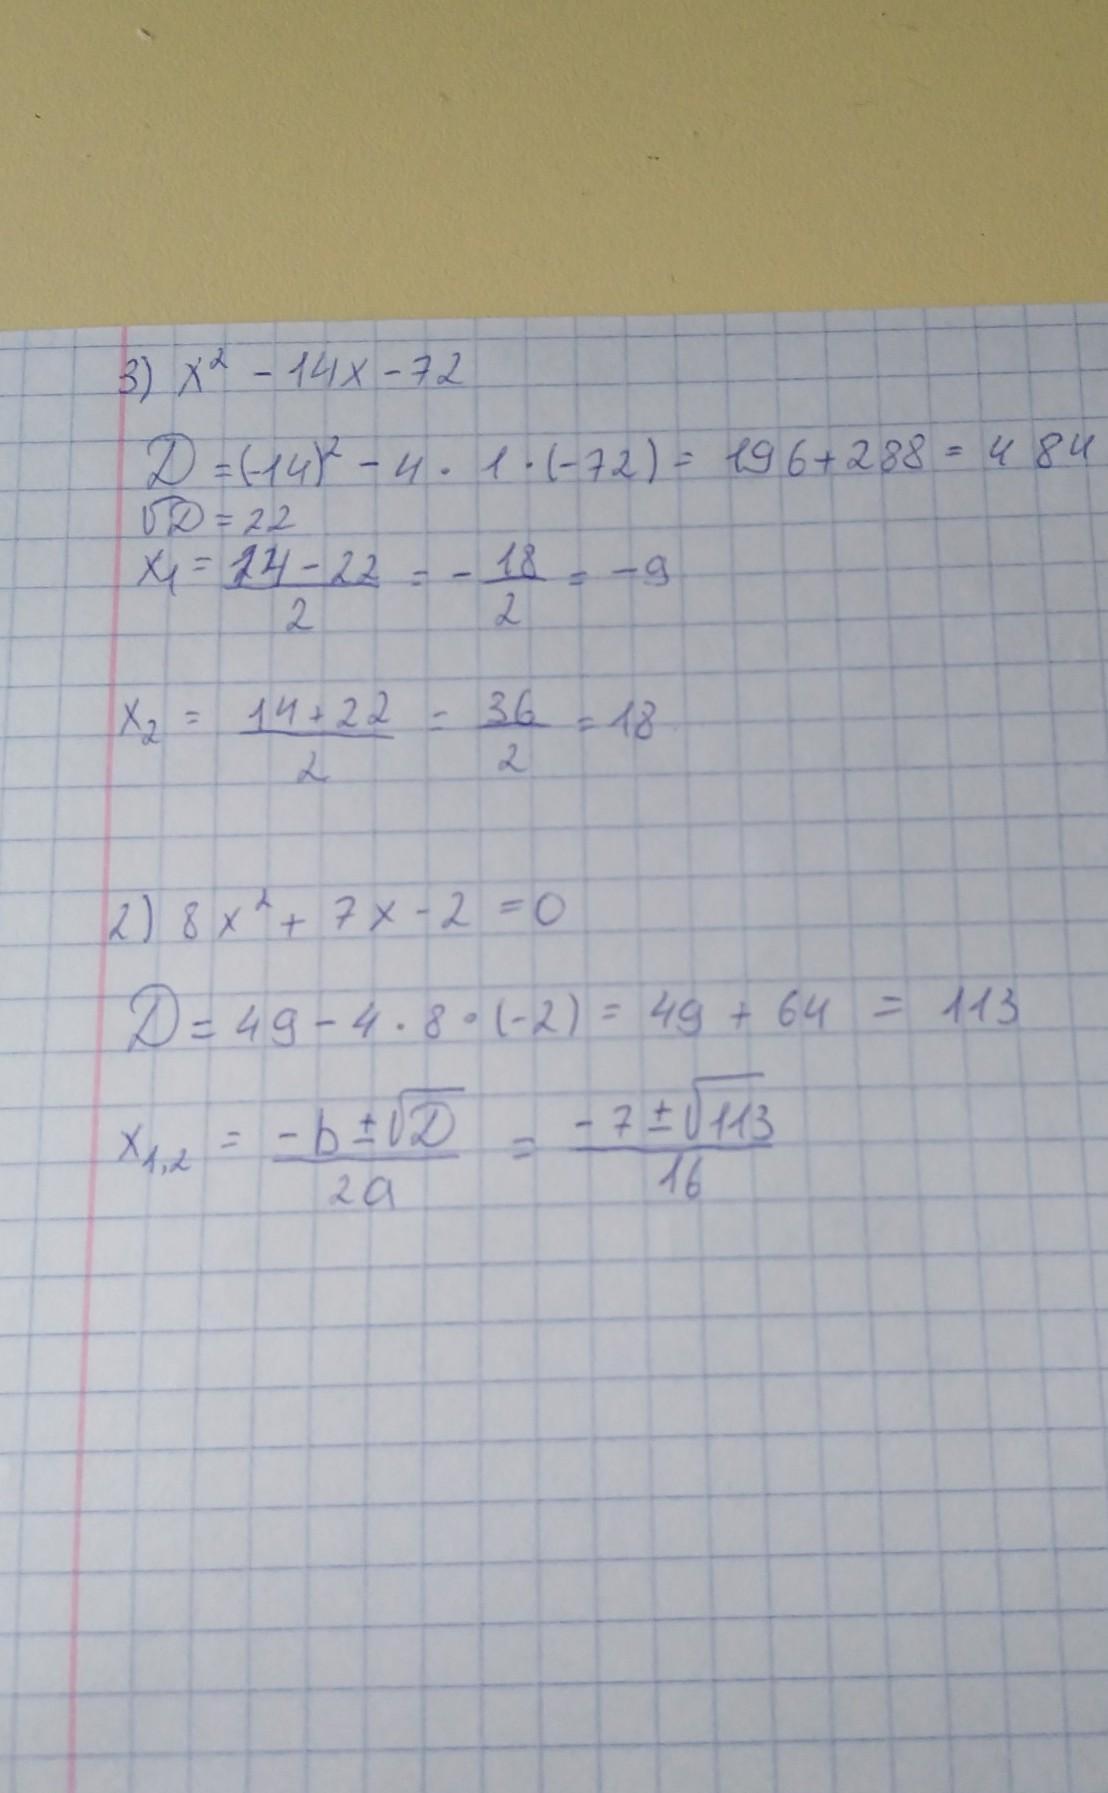 3) x² - 14x - 72
D = (-14)² - 4 · 1 · (-72) = 196 + 288 = 484
√D = 22
x₁ = (14 - 22)/2 = - 18/2 = -9
x₂ = (14 + 22)/2 = 36/2 = 18
2) 8x² + 7x - 2 = 0
D = 49 - 4 · 8 · (-2) = 49 + 64 = 113
x₁,₂ = (-b ± √D)/2a = (-7 ± √113)/16